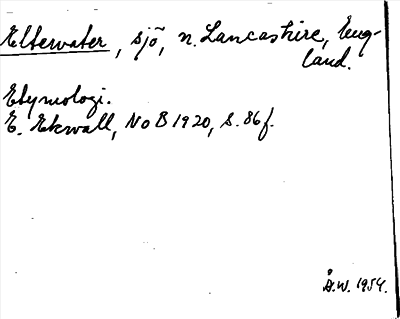 Elterwater, sjö, n. Lancashire, Eng-
land.
Etymologi.
E. Ekwall, NoB 1920, s. 86 f.
Å.W. 1954.